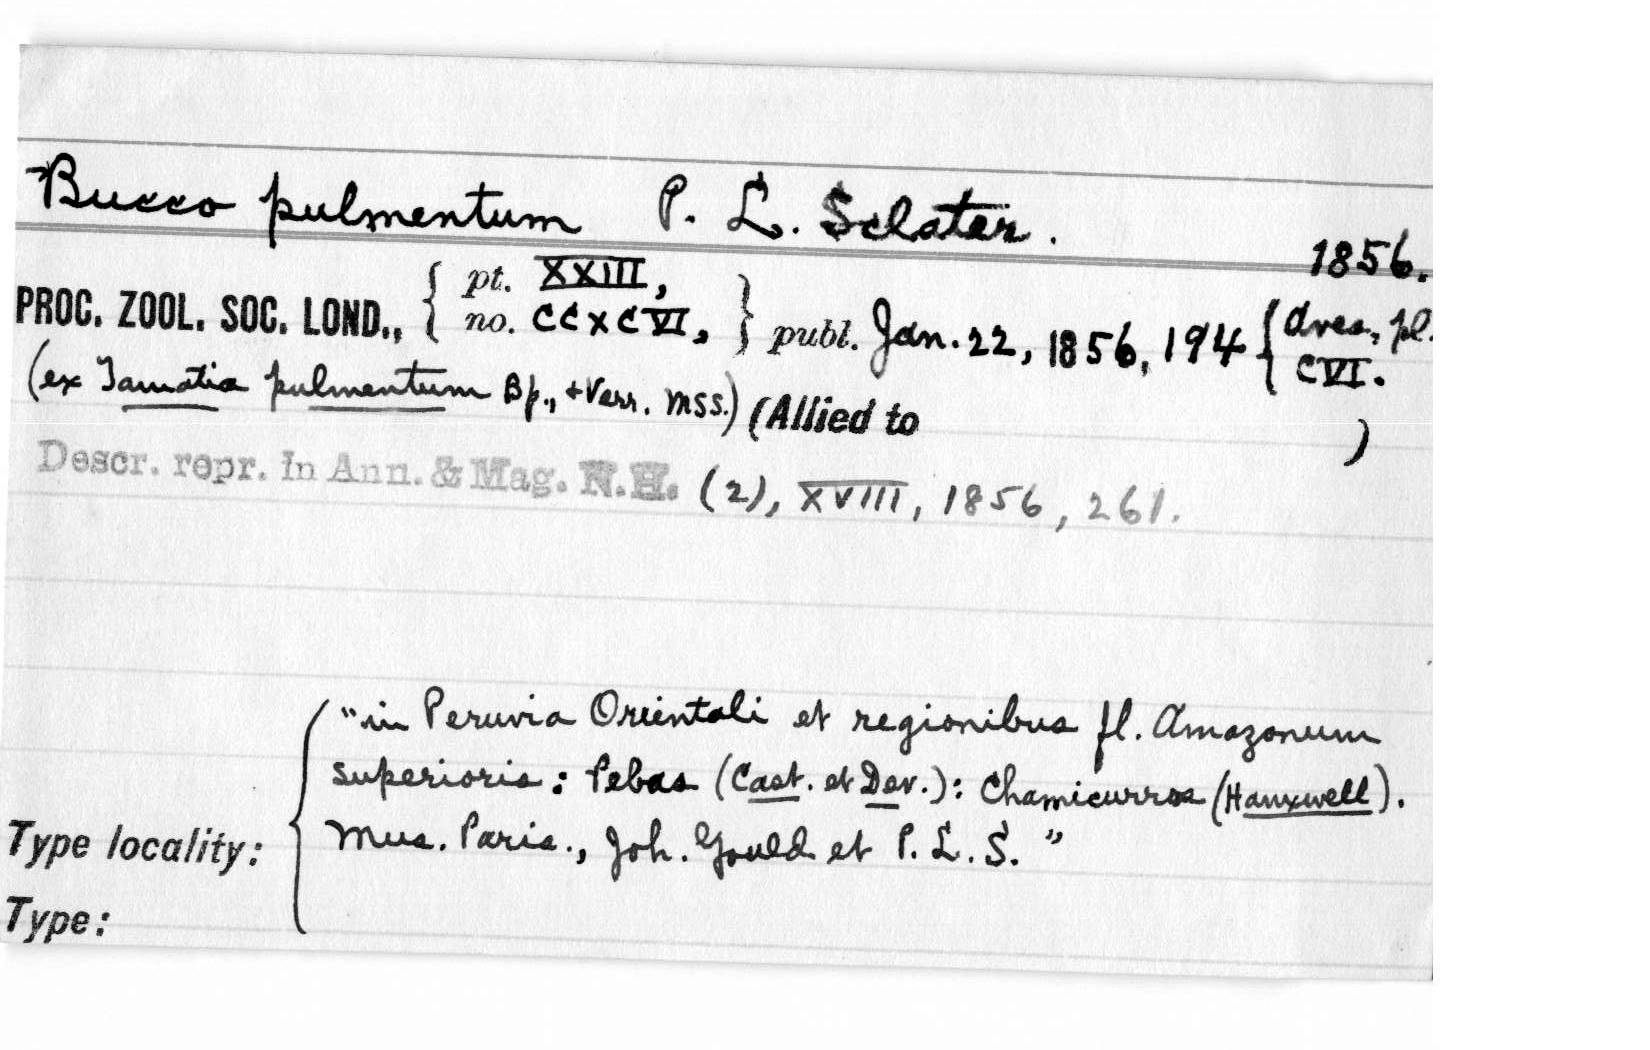 Bucco pulmentum P. L. Sclater.
1856.
PROC. ZOOL. SOC. LOND., { pt. XXIII, no. CCXCVI, } publ. Jan. 22, 1856, 194 { Aves, pl. CVI.
(ex Tamatia pulmentum Bp., + Verr. MSS.) (Allied to )
Descr. repr. in Ann. & Mag. N.H. (2), XVIII, 1856, 261.
"in Peruvia Orientali et regionibus fl. Amazonum
superioris: Pebas (Cast. et Dev.): Chamicurros (Hauxwell).
Type locality: { Mus. Paris., Joh. Gould et P. L. S."
Type: